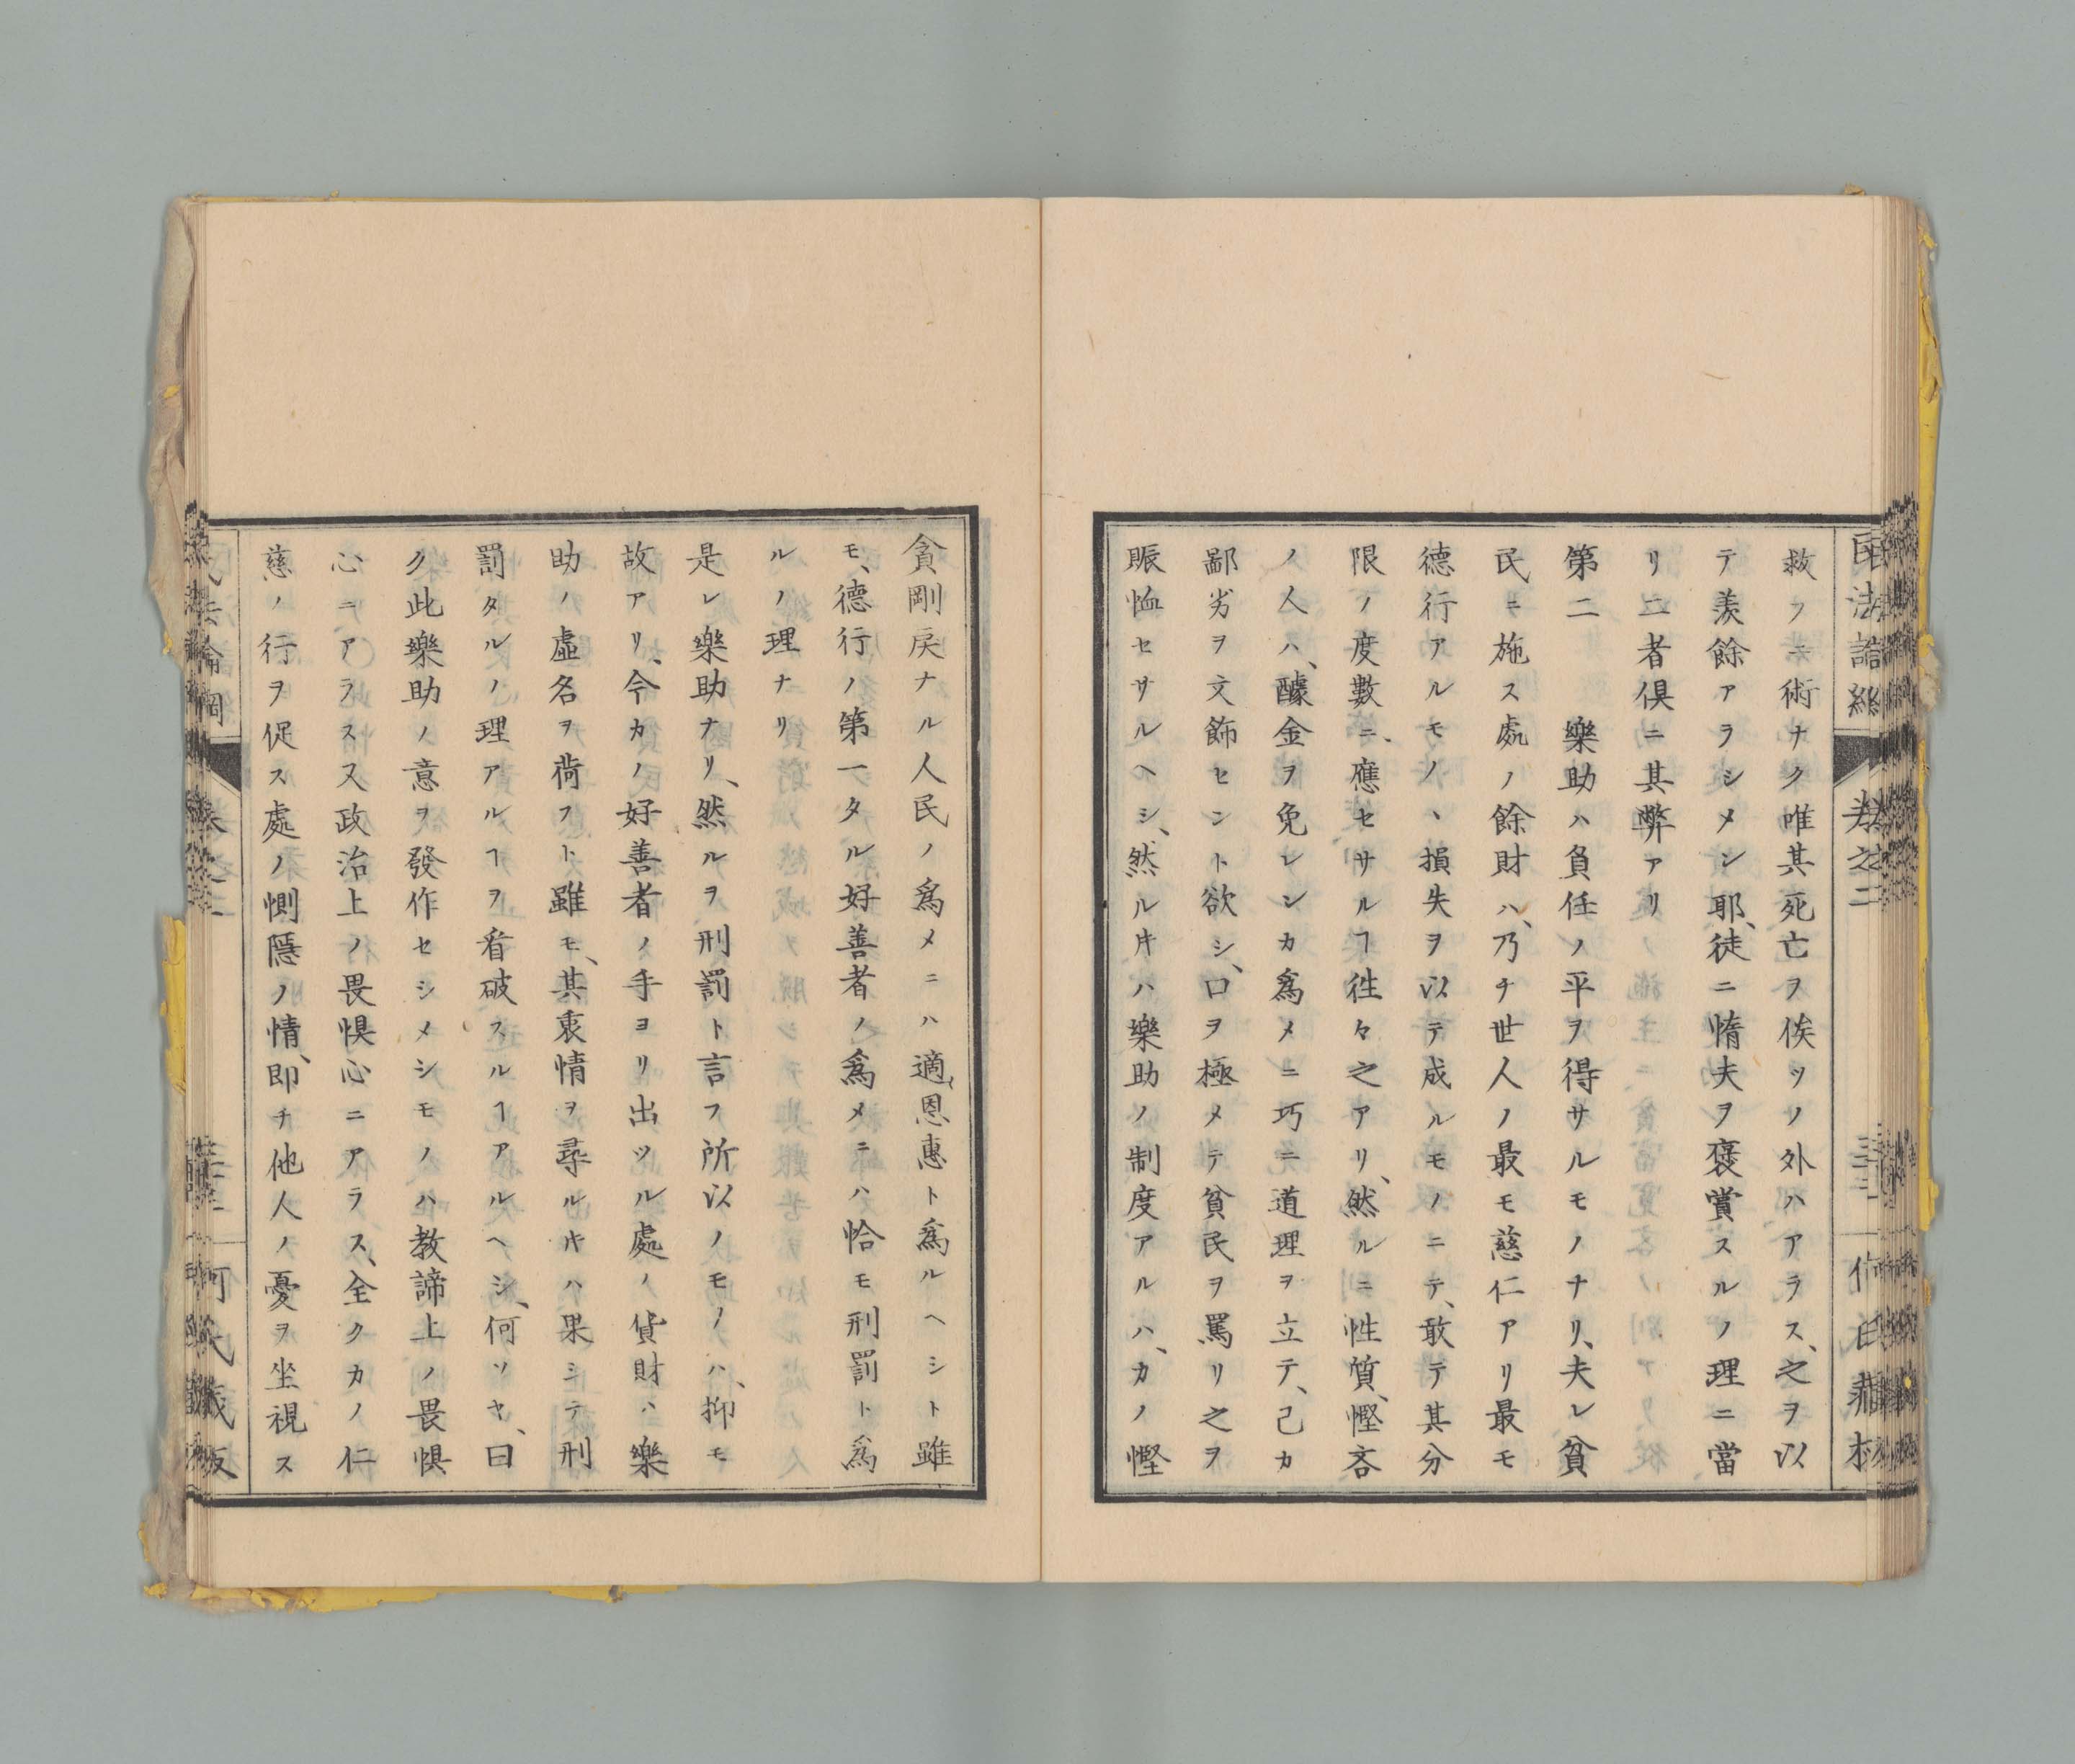 救フニ術ナク唯其死亡ヲ俟ツノ外ハアラス、之ヲ以
テ羨餘アラシメン耶、徒ニ惰夫ヲ褒賞スルノ理ニ當
リ二者俱ニ其弊アリ
第二　樂助ハ負任ノ平ヲ得サルモノナリ、夫レ貧
民ニ施ス處ノ餘財ハ、乃チ世人ノ最モ慈仁アリ最モ
德行アルモノヽ損失ヲ以テ成ルモノニテ、敢テ其分
限ノ度數ニ、應セサルヿ徃々之アリ、然ルニ性質、慳吝
ノ人ハ、醵金ヲ免レンカ爲メニ巧ニ道理ヲ立テ、己カ
鄙劣ヲ文飾セント欲シ、口ヲ極メテ貧民ヲ罵リ之ヲ
賑恤セサルヘシ、然ルㇳキハ樂助ノ制度アルハ、カノ慳
貪剛戾ナル人民ノ爲メニハ適、恩惠ト爲ルヘシト雖
モ、德行ノ第一タル好善者ノ爲メニハ恰モ刑罰ト爲
ルノ理ナリ
是レ樂助ナリ、然ルヲ刑罰ト言フ所以ノモノハ、抑モ
故アリ、今カノ好善者ノ手ヨリ出ツル處ノ貨財ハ樂
助ノ虛名ヲ荷フト雖モ、其衷情ヲ尋ルㇳキハ果シテ刑
罰タルノ理アルヿヲ看破スルヿアルヘシ、何ソヤ、曰
ク此樂助ノ意ヲ發作セシメシモノハ教諦上ノ畏惧
心ニアラス又政治上ノ畏惧心ニアラス、全クカノ仁
慈ノ行ヲ促ス處ノ惻隱ノ情、即チ他人ノ憂ヲ坐視ス